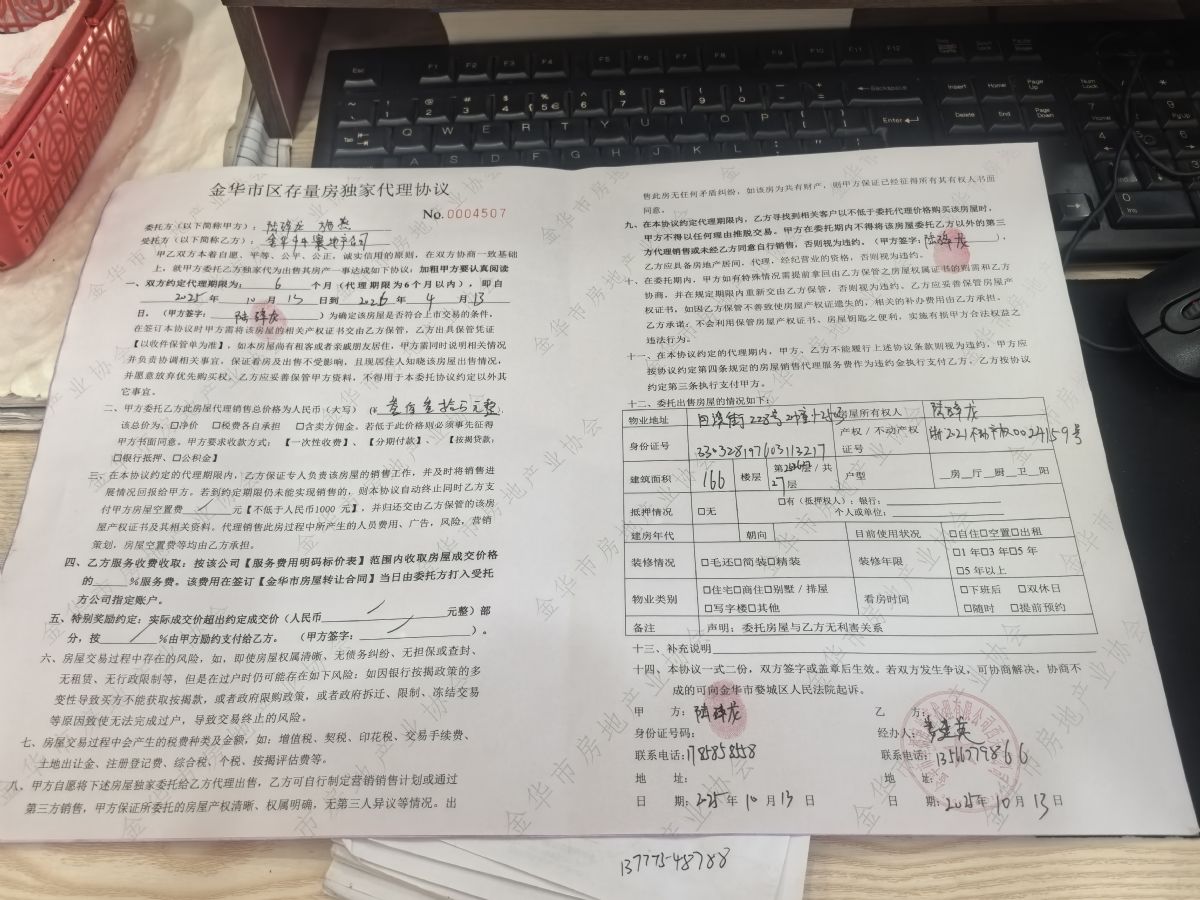 金华市区存量房独家代理协议
No.0004507
委托方（以下简称甲方）：陆 龙
受托方（以下简称乙方）：金华 公司
甲乙方本着自愿、平等、公平、公正、诚实信用的原则，在双方协商一致基础
上，就甲方委托乙方独家代为出售其房产一事达成如下协议：加粗甲方要认真阅读
一、双方约定代理期限为：6 个月（代理期限为6个月以内），即自
2025年 10 月 13 日到 2026 年 4 月 13
日。（甲方签字：陆 龙）为确定该房屋是否符合上市交易的条件，
在签订本协议时甲方需将该房屋的相关产权证书交由乙方保管，乙方出具保管凭证
【以收件保管单为准】，如本房屋尚有租客或者亲戚朋友居住，甲方需同时说明相关情况
并负责协调相关事宜，保证看房及出售不受影响，且现居住人知晓该房屋出售情况，
并愿意放弃优先购买权。乙方应妥善保管甲方资料，不得用于本委托协议约定以外其
它事宜。
二、甲方委托乙方此房屋代理销售总价格为人民币（大写）（¥ 壹佰 拾 ），
该总价为、☐净价 ☐税费各自承担 ☐含卖方佣金。若低于此价格则必须事先征得
甲方书面同意。甲方要求收款方式：【一次性收费】、【分期付款】、【按揭贷款：
☐银行抵押、☐公积金】
三、在本协议约定的代理期限内，乙方保证专人负责该房屋的销售工作，并及时将销售进
展情况回报给甲方。若到约定期限仍未能实现销售的，则本协议自动终止同时乙方支
付甲方房屋空置费 / 元【不低于人民币1000 元】，并归还交由乙方保管的该房
屋产权证书及其相关资料。代理销售此房过程中所产生的人员费用、广告，风险，营销
策划，房屋空置费等均由乙方承担。
四、乙方服务收费收取：按该公司【服务费用明码标价表】范围内收取房屋成交价格
的____%服务费。该费用在签订【金华市房屋转让合同】当日由委托方打入受托
方公司指定账户。
五、特别奖励约定：实际成交价超出约定成交价（人民币 / 元整）部
分，按 / %由甲方励约支付给乙方。（甲方签字： / ）。
六、房屋交易过程中存在的风险，如，即使房屋权属清晰、无债务纠纷、无担保或查封、
无租赁、无行政限制等，但是在过户时仍可能存在如下风险：如因银行按揭政策的多
变性导致买方不能获取按揭款，或者政府限购政策，或者政府拆迁、限制、冻结交易
等原因致使无法完成过户，导致交易终止的风险。
七、房屋交易过程中会产生的税费种类及金额，如：增值税、契税、印花税、交易手续费、
土地出让金、注册登记费、综合税、个税、按揭评估费等。
八、甲方自愿将下述房屋独家委托给乙方代理出售，乙方可自行制定营销销售计划或通过
第三方销售，甲方保证所委托的房屋产权清晰、权属明确，无第三人异议等情况。出
售此房无任何矛盾纠纷，如该房为共有财产，则甲方保证已经征得所有其有权人书面
同意。
九、在本协议约定代理期限内，乙方寻找到相关客户以不低于委托代理价格购买该房屋时，
甲方不得以任何理由推脱交易。甲方在委托期内不得将该房屋委托乙方以外的第三
方代理销售或未经乙方同意自行销售，否则视为违约。（甲方签字：陆 龙），
乙方应具备房地产居间，代理、经纪营业的资格，否则视为违约。
十、在委托期内，甲方如有特殊情况需提前拿回由乙方保管之房屋权属证书的则需和乙方
协商，并在规定期限内重新交由乙方保管，否则视为违约。乙方应妥善保管房屋产
权证书，如因乙方保管不善致使房屋产权证遗失的，相关的补办费用由乙方承担。
乙方承诺：不会利用保管房屋产权证书、房屋钥匙之便利，实施有损甲方合法权益之
违法行为。
十一、在本协议约定的代理期内，甲方、乙方不能履行上述协议条款则视为违约，甲方应
按协议约定第四条规定的房屋销售代理服务费作为违约金执行支付乙方，乙方按协议
约定第三条执行支付甲方。
十二、委托出售房屋的情况如下：
物业地址 街228号 房屋所有权人 陆 龙
身份证号 330328197603113217 产权／不动产权证号 浙2021 不动产权0024159号
建筑面积 166 楼层 第 层/共27层 户型 __房__厅__厨__卫__阳
抵押情况 ☐无 ☐有（抵押权人）：银行：
个人或单位：
建房年代 朝向 目前使用状况 ☐自住☐空置☐出租
装修情况 ☐毛还☐简装☐精装 装修年限 ☐1年☐3年☐5年
☐5年以上
物业类别 ☐住宅☐商住☐别墅／排屋
☐写字楼☐其他 看房时间 ☐下班后 ☐双休日
☐随时 ☐提前预约
备注 声明：委托房屋与乙方无利害关系
十三、补充说明
十四、本协议一式二份，双方签字或盖章后生效。若双方发生争议，可协商解决，协商不
成的可向金华市婺城区人民法院起诉。
甲 方：陆 龙 乙 方：
身份证号码： 经办人： 英
联系电话：1785858558 联系电话：13516779866
地 址： 地 址：
日 期：2025年 10 月 13 日 日 期：2025年 10 月 13 日
13777548788